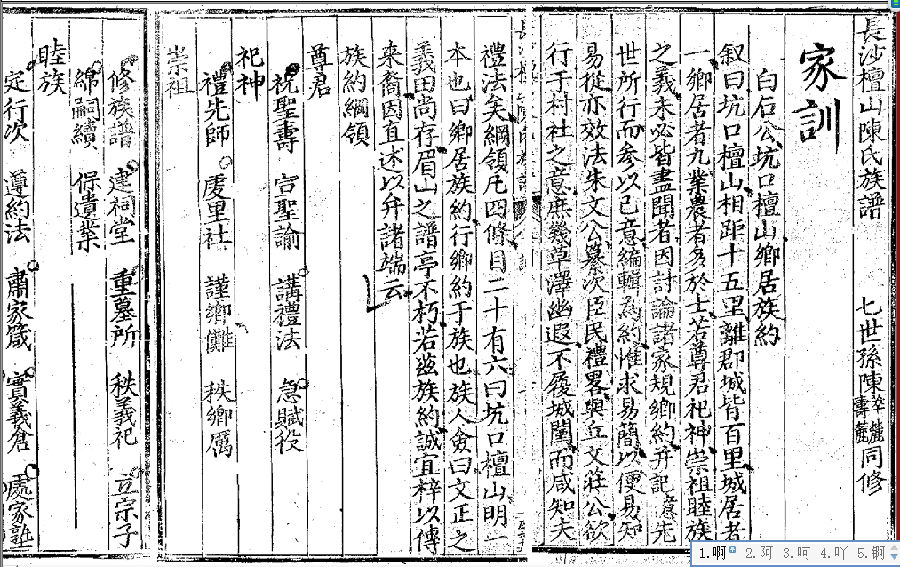 長沙檀山陳氏族譜 七世孫陳 同修
家訓
白石公坑口檀山鄉居族約
叙曰坑口檀山相距十五里離郡城皆百里城居者
一鄉居者九業農者多於士若尊君祀神崇祖睦族
之義未必皆盡聞者因討論諸家規鄉約并記先
世所行而參以己意編輯為約惟求易簡以便易知
易從亦效法朱文公纂次臣民禮畧與丘文莊公欲
行于村社之意庶幾草澤幽遐不履城闉而咸知夫
禮法矣綱領凡四條目二十有六曰坑口檀山明一
本也曰鄉居族約行鄉約于族也族人僉曰文正之
義田尚存眉山之譜亭不朽若茲族約誠宜梓以傳
来裔因直述以弁諸端云
族約綱領
尊君
祝聖壽 宣聖諭 講禮法 急賦役
祀神
禮先師 處里社 謹鄉儺 秩鄉厲
崇祖
修族譜 建祠堂 重墓所 秩義祀 立宗子
綿嗣續 保遺業
睦族
定行次 遵約法 肅家箴 實義倉 處家塾
1.啊 2.珂 3.呵 4.吖 5.锕